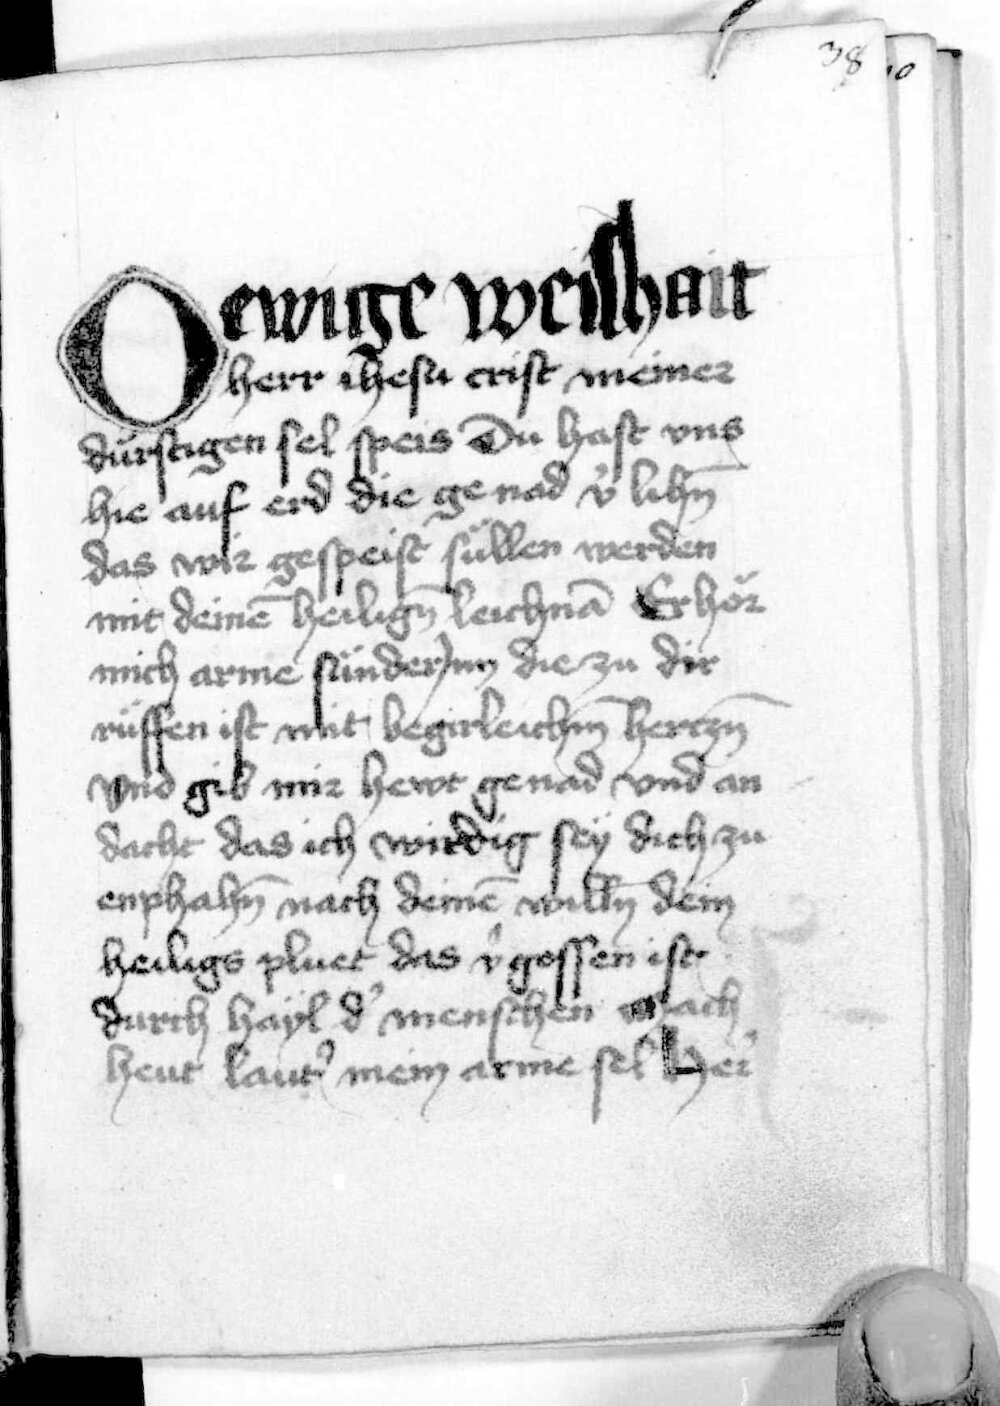 38
O ewige weishait
herr ihesu crist meiner
dürstigen sel speis Du hast vns
hie auf erd die genad v͛lihn̄
das wir gespeist süllen werden
mit deinē heilign̄ leichnā Erhör
mich arme sünderinn die zu dir
rüffen ist mit begirleichn̄ hertzn̄
vnd gib mir hewt genad vnd an
dacht das ich wirdig seÿ dich zu
enphahn̄ nach deinē willn̄ dein
heiligs pluet das v͛gossen ist
durch haÿl d͛ menschen Mach
heut laut͛ mein arme sel Her͛